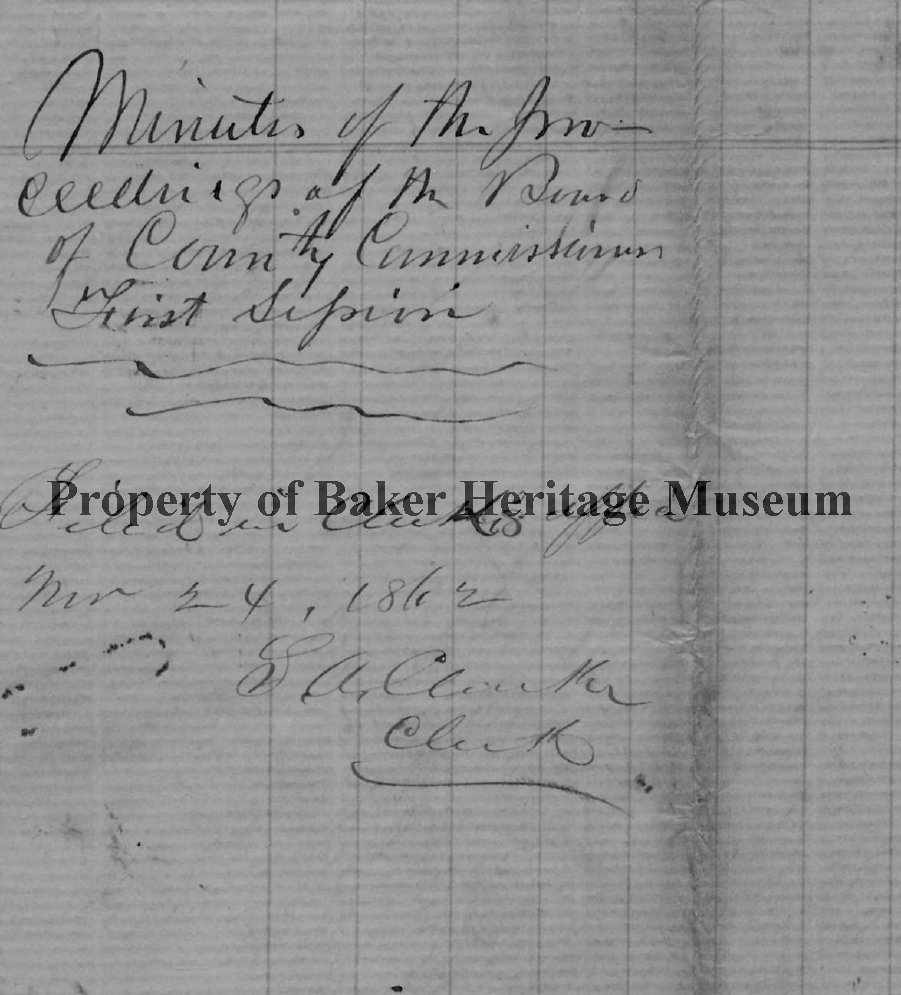 Minutes of the pro-
ceedings of the Board
of County Commissioners
First Session
Property of Baker Heritage Museum
Filed in Clerk's office
Nov 24, 1862
S. A. Clarke
Clerk